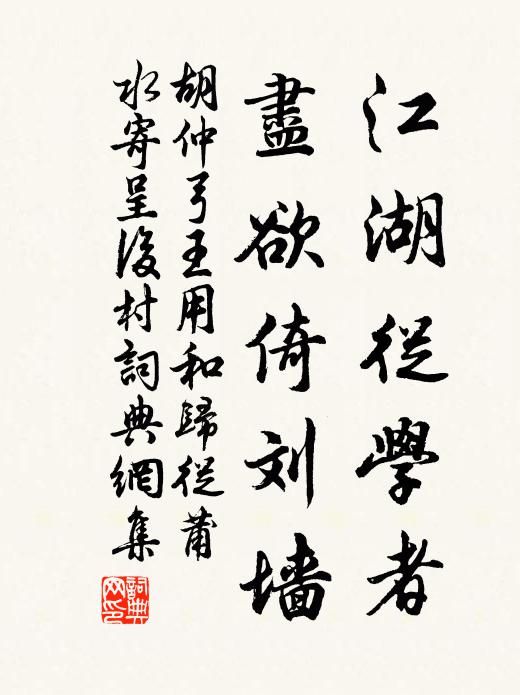 江湖從學者
盡欲倚刘墙
胡仲弓王用和歸從莆
水寄呈後村詞典網集
詞典网印